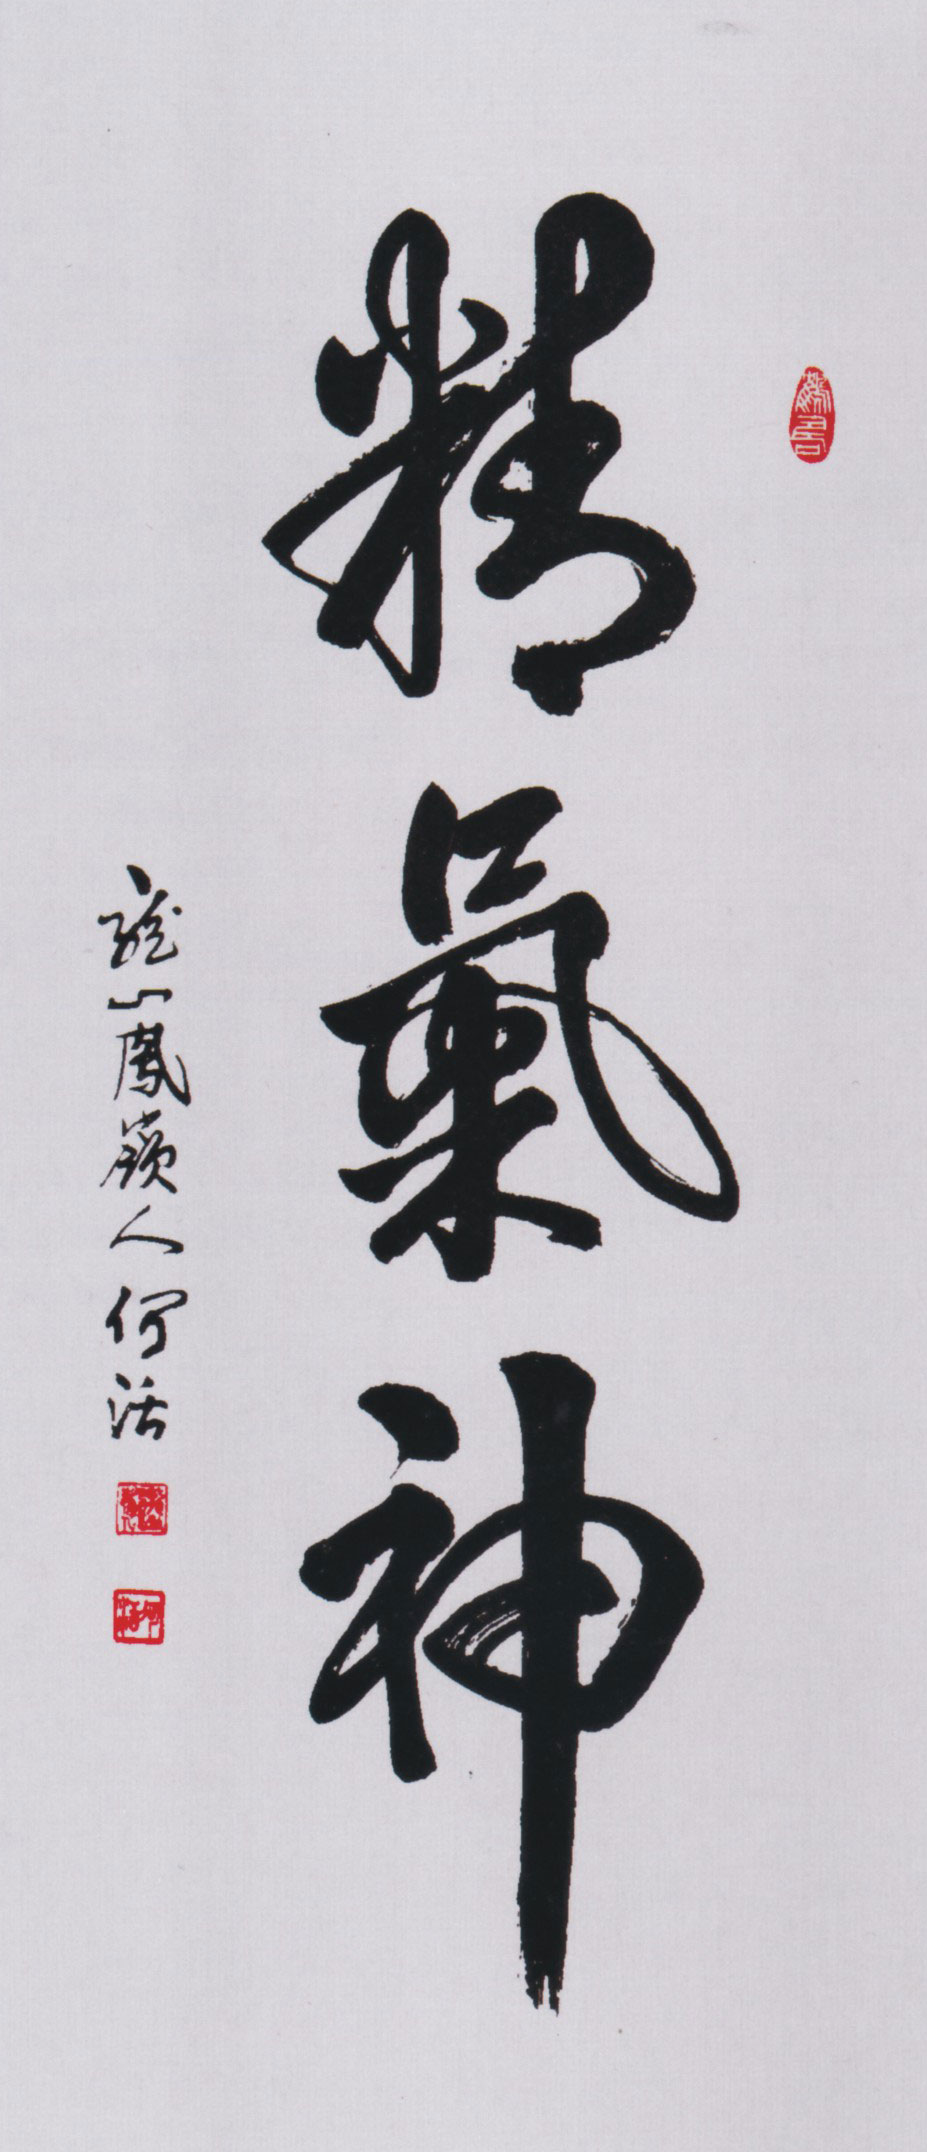 精氣神
龍山鳳嶺人何活